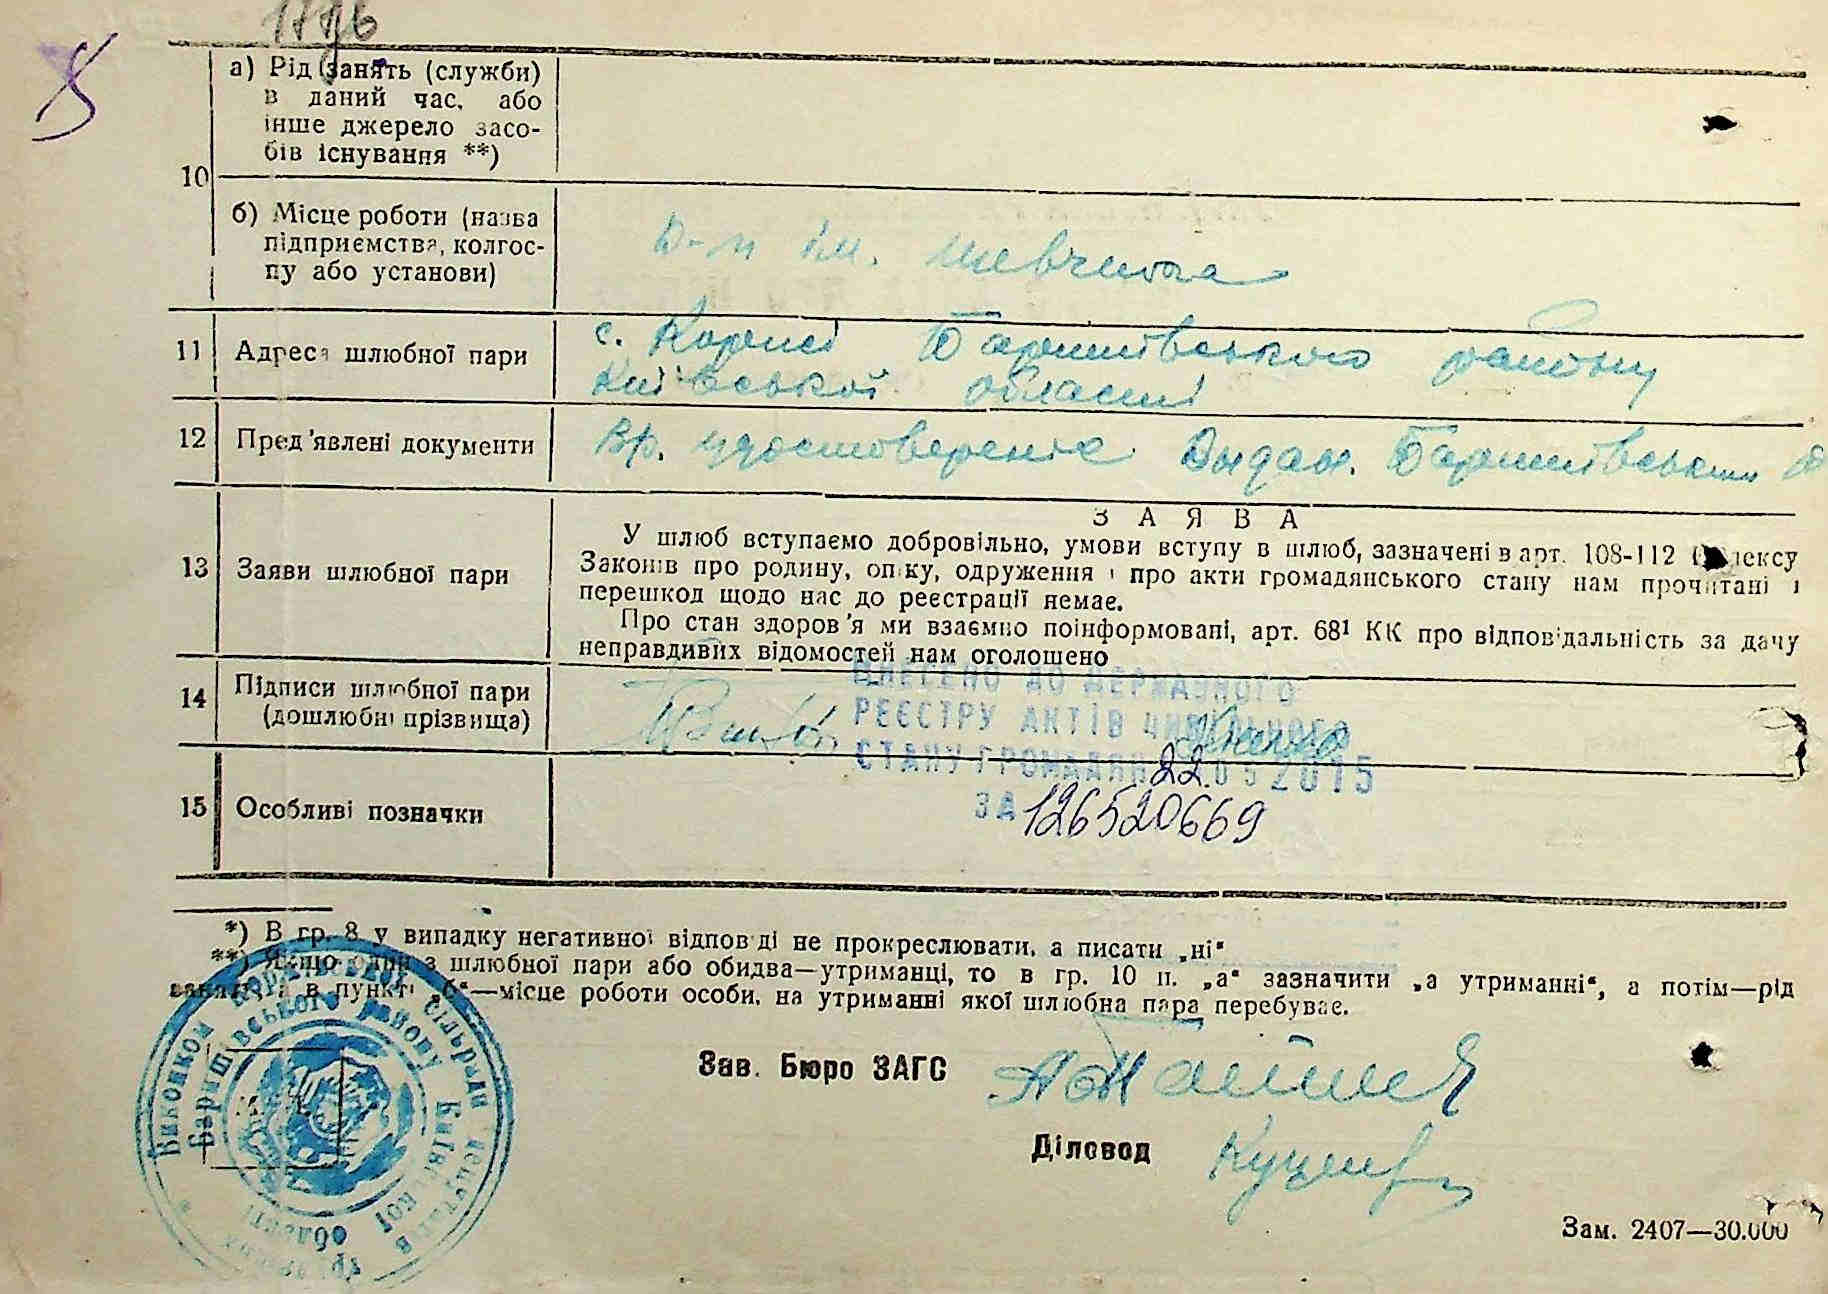 а) Рід занять (служби)
в даний час, або
інше джерело засо-
бів існування **)
10
б) Місце роботи (назва
підприємства, колгос-
пу або установи)
к-п ім. Шевченка
11 Адреса шлюбної пари
с. Коржі Баришівського району
Київської області
12 Пред'явлені документи
Вр. удостоверение Выдан. Баришівським
З А Я В А
13 Заяви шлюбної пари
У шлюб вступаємо добровільно, умови вступу в шлюб, зазначені в арт. 108-112 Кодексу
Законів про родину, опіку, одруження і про акти громадянського стану нам прочитані і
перешкод щодо нас до реєстрації немає.
Про стан здоров'я ми взаємно поінформовані, арт. 68¹ КК про відповідальність за дачу
неправдивих відомостей нам оголошено
14 Підписи шлюбної пари
(дошлюбні прізвища)
ВНЕСЕНО ДО ДЕРЖАВНОГО
РЕЄСТРУ АКТІВ ЦИВІЛЬНОГО
СТАНУ ГРОМАДЯН 22.05 2015
ЗА 126520669
15 Особливі позначки
*) В гр. 8 у випадку негативної відповіді не прокреслювати, а писати „ні"
**) Якщо один з шлюбної пари або обидва—утриманці, то в гр. 10 п. „а" зазначити „а утриманні", а потім—рід
занять, та в пункті „б"—місце роботи особи, на утриманні якої шлюбна пара перебуває.
Зав. Бюро ЗАГС
Діловод
Виконком Коржівської сільради депутатів трудящих
Баришівського району Київської області
Зам. 2407—30.000